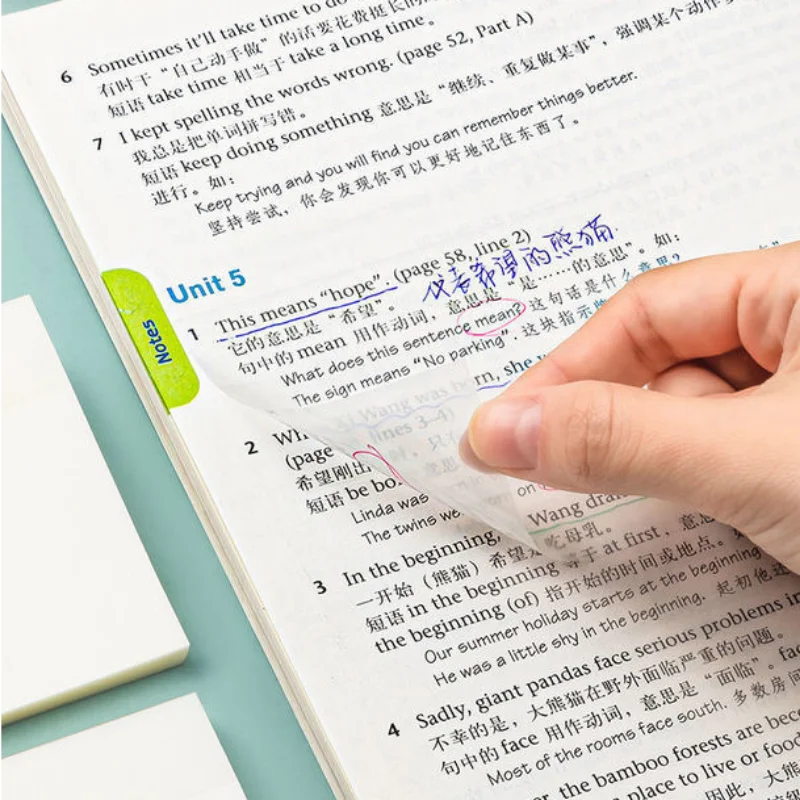 6 Sometimes it'll take time to do
有时干“自己动手做”的活要花费挺长的
短语 take time 相当于 take a long time。
7 I kept spelling the words wrong. (page 52, Part A)
我总是把单词拼写错。
短语 keep doing something 意思是“继续、重复做某事”，强调某个动作
进行。如：
Keep trying and you will find you can remember things better.
坚持尝试，你会发现你可以更好地记住东西了。
Unit 5
Notes
1 This means “hope”. (page 58, line 2)
的熊猫
它的意思是“希望”。
句中的 mean 用作动词，意思是“是……的意思”。如：
What does this sentence mean? 这句话是什么意思？
The sign means “No parking”. 这块指示
Wang was born, she
2 Wh
(page lines 3–4)
希望刚出
短语 be bo
Linda was
The twins we on
Wang
吃母乳。
3 In the beginning,
一开始（熊猫）希望
短语 in the beginning 等于 at first，意思
the beginning (of) 指开始的时间或地点。如
Our summer holiday starts at the beginning
He was a little shy in the beginning. 起初他
4 Sadly, giant pandas face serious problems in
不幸的是，大熊猫在野外面临严重的问题。
句中的 face 用作动词，意思是“面临”。fac
Most of the rooms face south. 多数房间
the bamboo forests are beco
place to live or food
因此，大熊